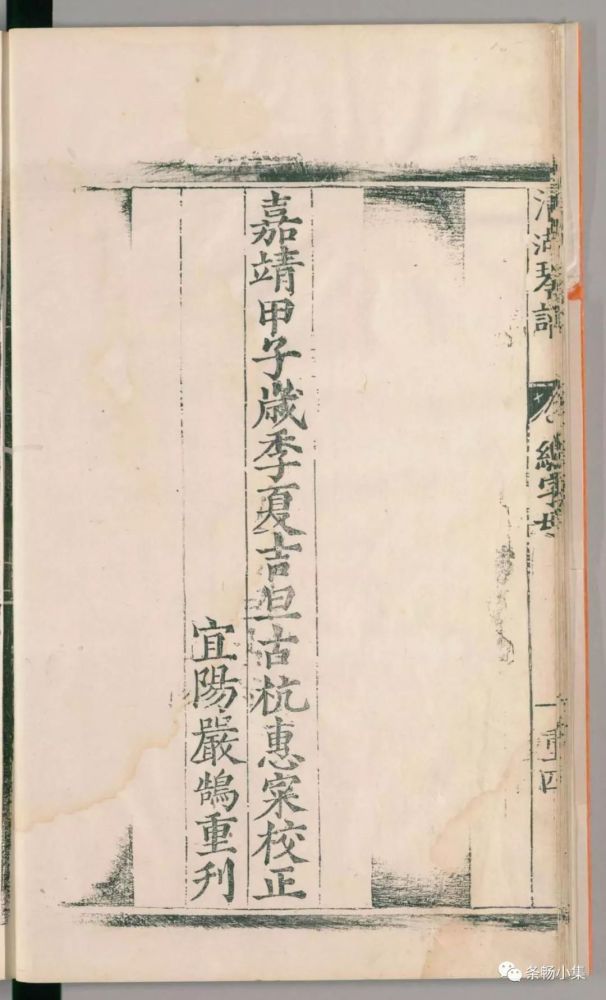 湖琴譜 總字母 一 重四
嘉靖甲子歲季夏吉旦古杭惠寀校正
宜陽嚴鵠重刊
条畅小集